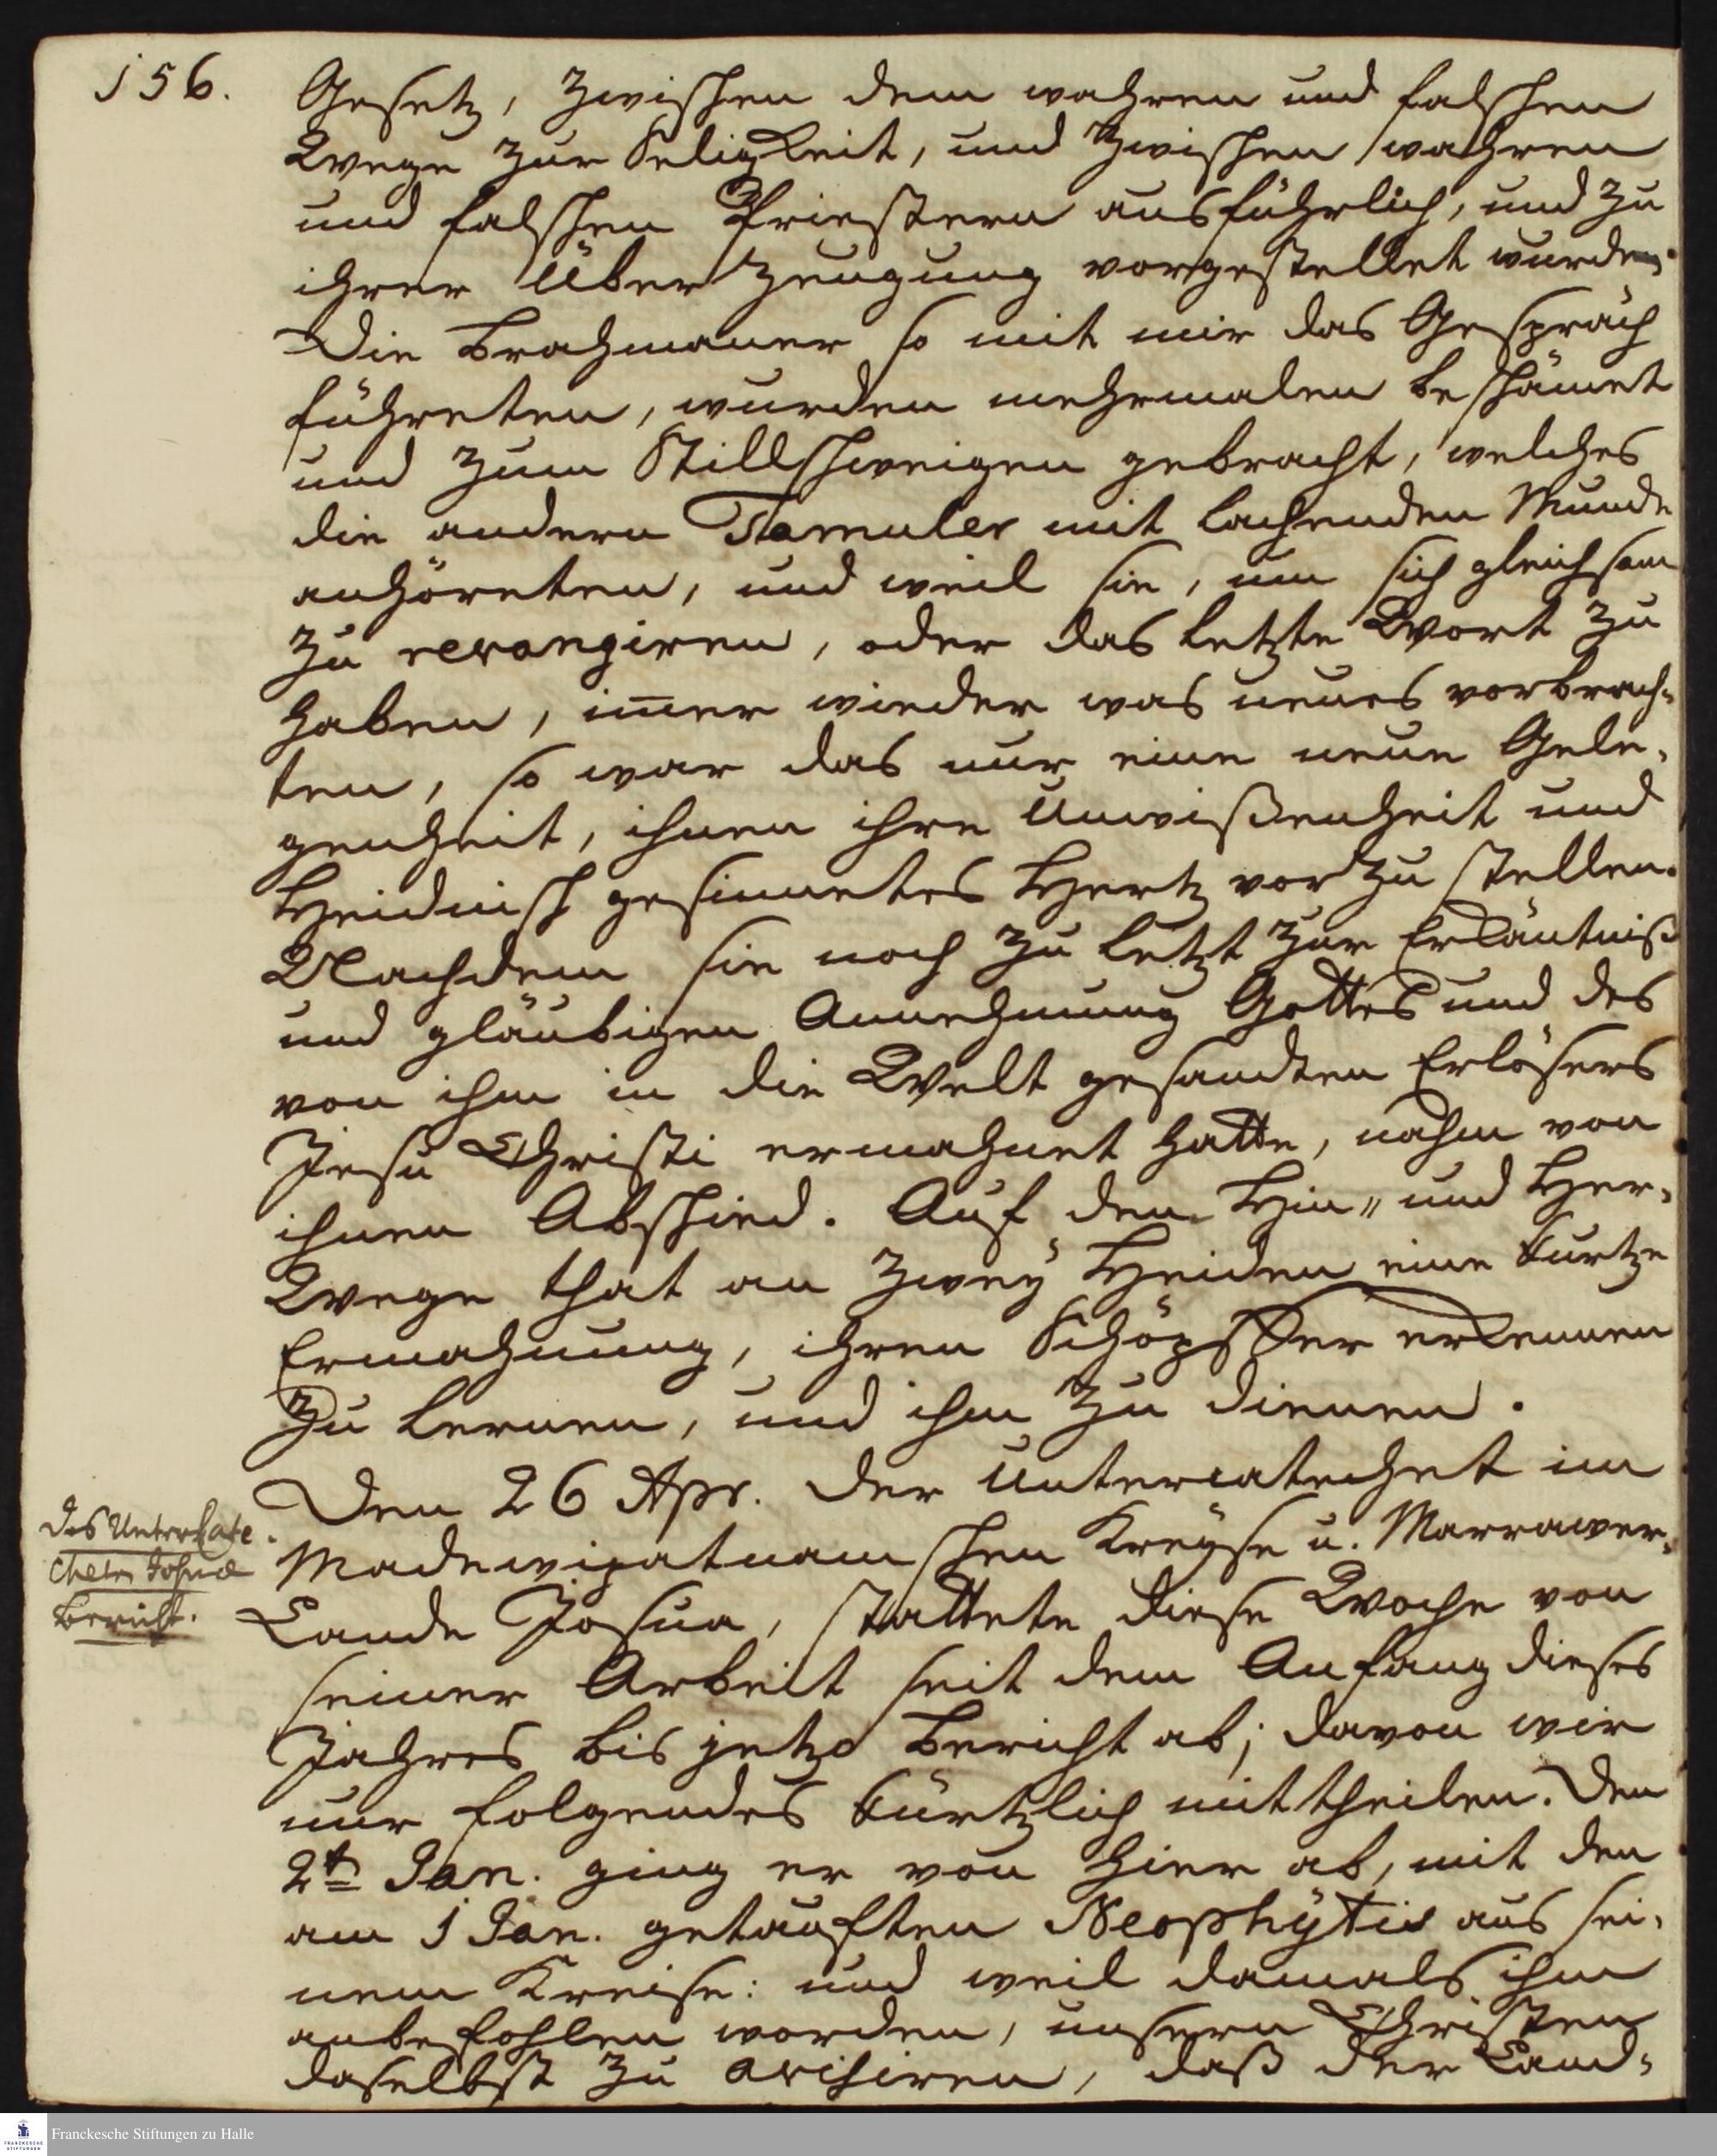 156.
Gesetz, zwischen dem wahren und falschen
Wege zur Seligkeit, und zwischen wahren
und falschen Priestern ausführlich, und zu
ihrer Überzeugung vorgestellet wurden.
Die Brahmaner so mit mir das Gespräch
führeten, wurden mehrmalen beschämet
und zum Stillschweigen gebracht, welches
die andern Tamuler mit lachenden Munde
anhöreten, und weil sie, um sich gleichsam
zu revangiren, oder das letzte Wort zu
haben, im̅er wieder was neues vorbrach-
ten, so war das nur eine neue Gele-
genheit, ihnen ihre Unwißenheit und
Heidnisch gesinnetes Hertz vorzustellen.
Nachdem sie noch zu letzt zur Erkäntniß
und gläubigen Annehmung Gottes und des
von ihm in die Welt gesandten Erlösers
Jesu Christi ermahnet hatte, nahm von
ihnen Abschied. Auf dem Hin- und Her-
Wege that an zwey Heiden eine kurtze
Ermahnung, ihren Schöpffer erkennen
zu lernen, und ihm zu dienen.
Den 26 Apr. der Untercatechet im
Madewipatnamschen Kreyse u. Marrawer-
Lande Josua, stattete diese Woche von
seiner Arbeit seit dem Anfang dieses
Jahres bis jetzo Bericht ab; davon wir
nur folgendes kürtzlich mittheilen. Den
2t. Jan. ging er von hier ab, mit den
am 1 Jan. getauften Neophytis aus sei-
nem Kreise: und weil damals ihm
anbefohlen worden, unsern Christen
daselbst zu avisiren, daß der Land-
des Unterkate-
cheten Josuae
Bericht.
Franckesche Stiftungen zu Halle